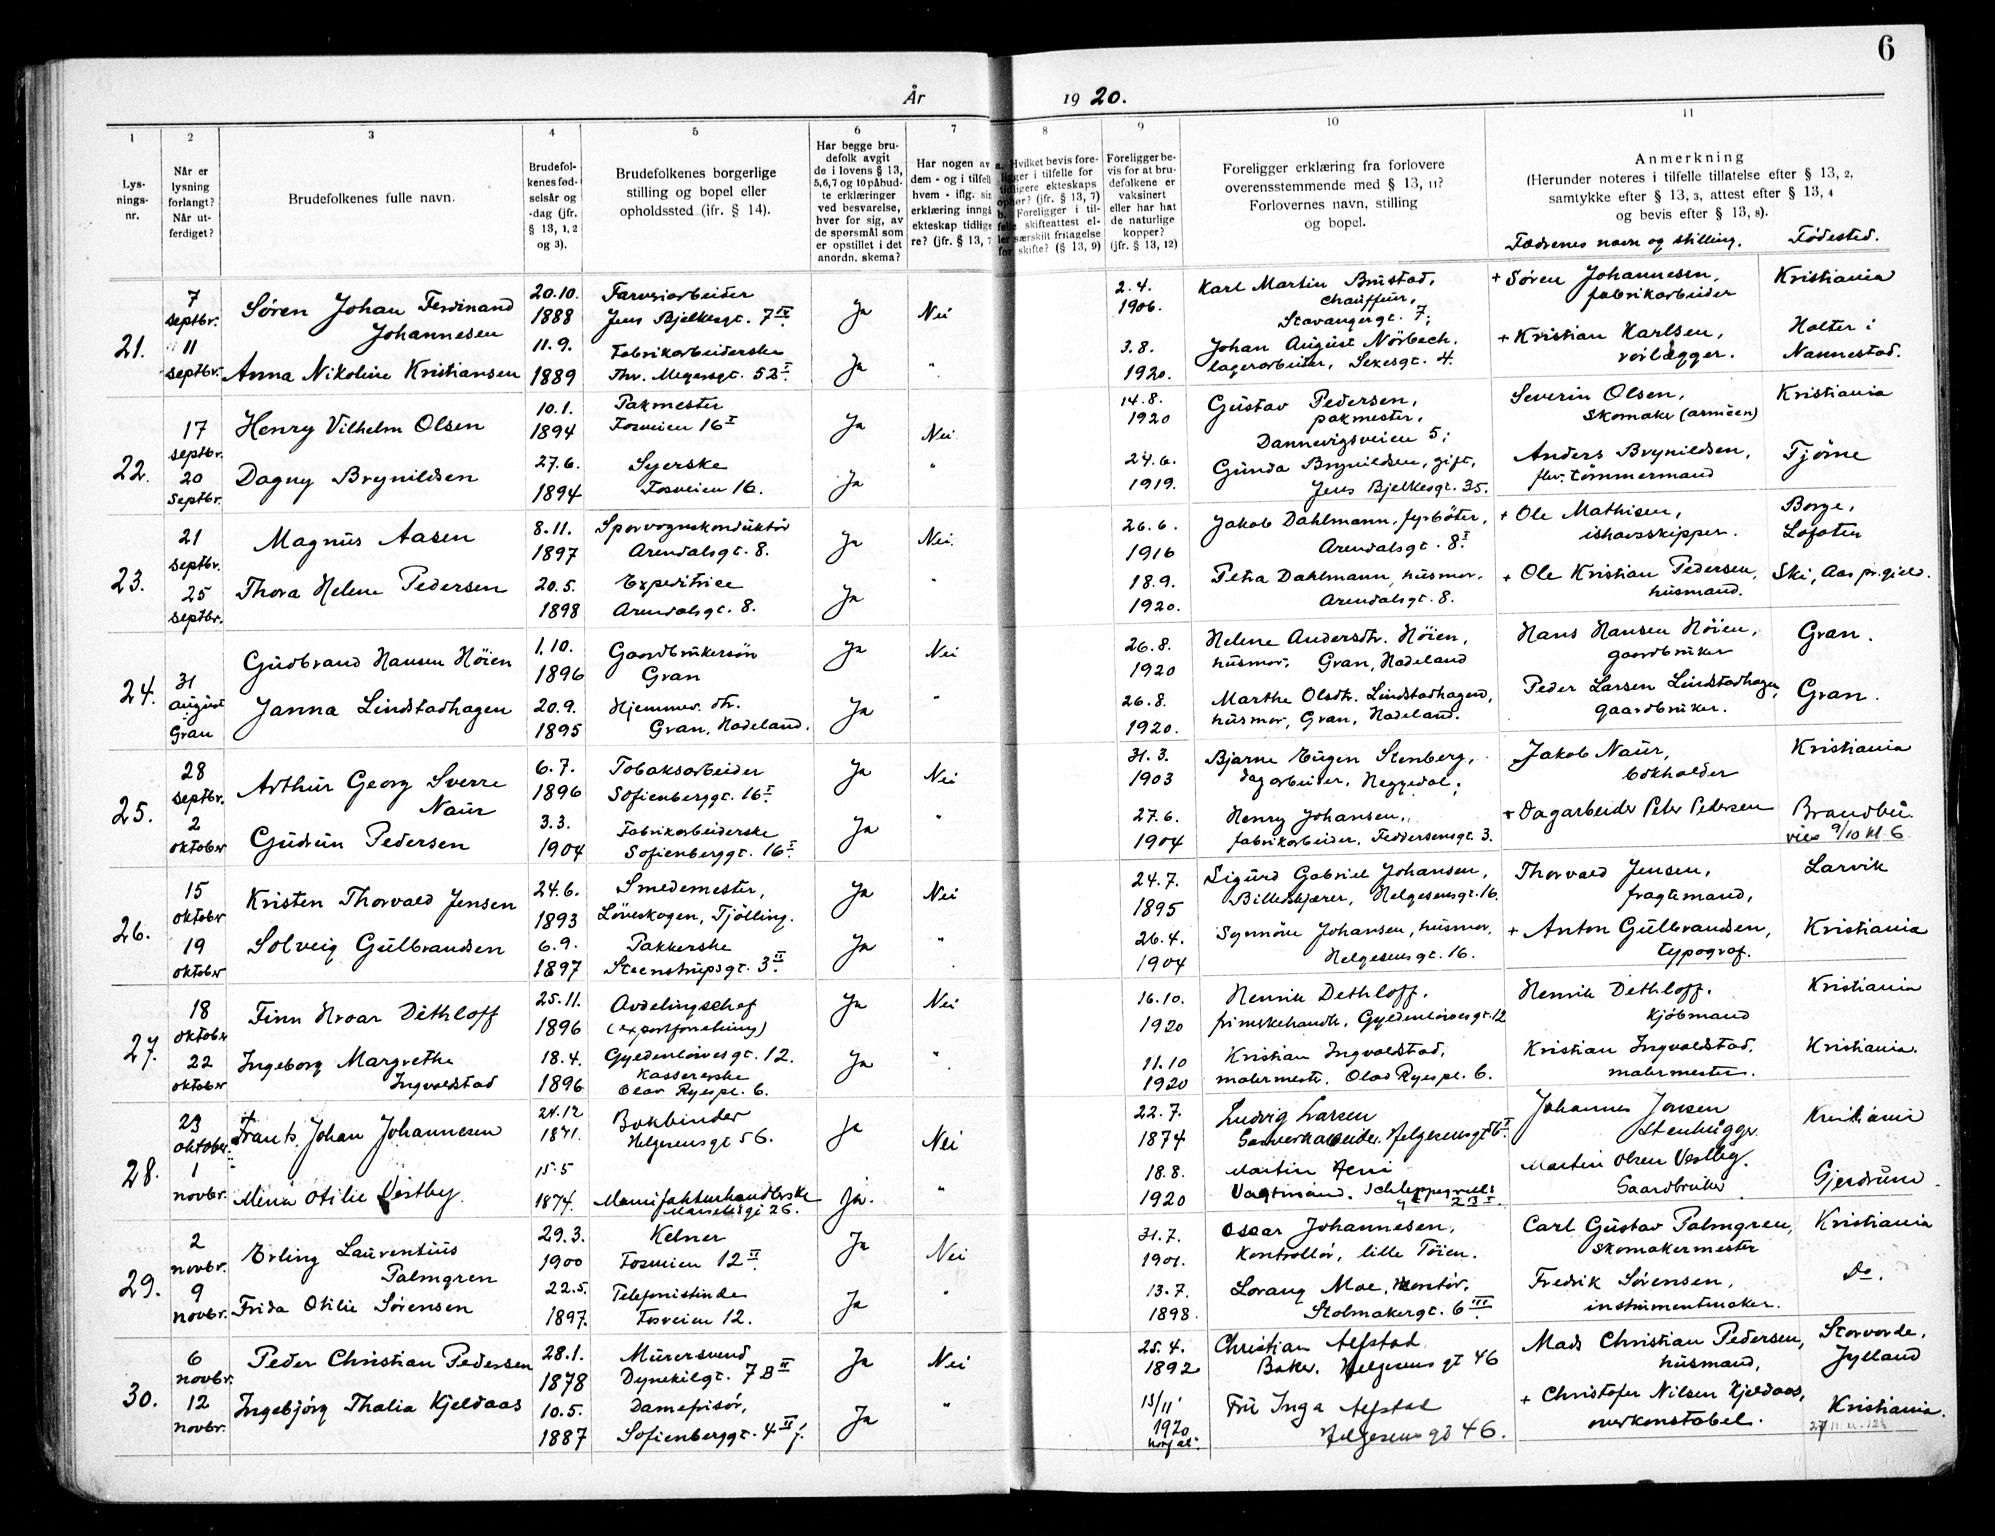 6
År 1920.
1 2 3 4 5 6 7 8 9 10 11
Lysningsnr.
Når er lysning forlangt? Når utferdiget?
Brudefolkenes fulle navn.
Brudefolkenes fødselsår og -dag (jfr. § 13, 1, 2 og 3).
Brudefolkenes borgerlige stilling og bopel eller opholdssted (ifr. § 14).
Har begge brudefolk avgit de i lovens § 13, 5, 6, 7 og 10 påbudte erklæringer ved besvarelse, hver for sig, av de spørsmål som er opstillet i det anordn. skema?
Har nogen av dem - og i tilfelle hvem - iflg. sin erklæring inngå ekteskap tidligere? (jfr. § 13, 7
a. Hvilket bevis foreligger i tilfelle for tidligere ekteskaps ophør? (jfr. § 13, 7)
b. Foreligger i tilfelle skifteattest eller særskilt fritagelse for skifte? (§ 13, 9)
Foreligger bevis for at brudefolkene er vaksinert eller har hat de naturlige kopper? (jfr. § 13, 12)
Foreligger erklæring fra forlovere overensstemmende med § 13, 11? Forlovernes navn, stilling og bopel.
Anmerkning
(Herunder noteres i tilfelle tillatelse efter § 13, 2, samtykke efter § 13, 3, attest efter § 13, 4 og bevis efter § 13, 8).
Fædrenes navn og stilling. Fødested.
21.
7 septbr. Søren Johan Ferdinand Johannesen 20.10. 1888 Farveriarbeider Jens Bjelkesgt. 7 IV. Ja Nei 2.4. 1906. Karl Martin Brustad, chauffeur, Stavangergt. 7; + Søren Johannesen, fabrikarbeider Kristiania
11 septbr. Anna Nikoline Kristiansen 11.9. 1889 Fabrikarbeiderske Thv. Meyersgt. 52 I. Ja " 3.8. 1920. Johan August Nörbech. lagerarbeider, Sexesgt. 4. + Kristian Karlsen, veilægger. Holter i Nannestad.
22.
17 septbr. Henry Vilhelm Olsen 10.1. 1894 Pakmester Fosveien 16 I Ja Nei 14.8. 1920 Gustav Pedersen, pakmester, Dannevigsveien 5; Severin Olsen, Skomaker (armeen) Kristiania
20 septbr. Dagny Brynildsen 27.6. 1894 Syerske Fosveien 16. Ja " 24.6. 1919. Gunda Brynildsen, gift, Jens Bjelkesgt. 35. Anders Brynildsen, fhv. tömmermand Tjöme
23.
21 septbr. Magnus Aasen 8.11. 1897 Sporvognskonduktör Arendalsgt. 8. Ja Nei. 26.6. 1916 Jakob Dahlmann, fyrböter, Arendalsgt. 8 I. + Ole Mathisen, ishavsskipper. Borge, Lofoten
25 septbr. Thora Helene Pedersen 20.5. 1898 Expeditrice Arendalsgt. 8. Ja " 18.9. 1920. Petra Dahlmann, husmor. Arendalsgt. 8. + Ole Kristian Pedersen, husmand. Ski, Aas pr.gjeld.
24.
31 august Gran Gudbrand Hansen Höien 1.10. 1896 Gaardbrukersön Gran Ja Nei 26.8. 1920 Helene Andersdtr. Höien, husmor, Gran, Hadeland Hans Hansen Höien, gaardbruker Gran.
Janna Lindstadhagen 20.9. 1895 Hjemmev. dtr. Gran, Hadeland. Ja " 26.8. 1920. Marthe Olsdtr. Lindstadhagen, husmor, Gran, Hadeland. Peder Larsen Lindstadhagen, gaardbruker. Gran.
25.
28 septbr. Arthur Georg Sverre Naur 6.7. 1896 Tobaksarbeider Sofienberggt. 16 I. Ja Nei 31.3. 1903 Bjarne Eugen Stenberg, dagarbeider, Heggedal; Jakob Naur, bokholder Kristiania
2 oktober Gudrun Pedersen 3.3. 1904 Fabrikarbeiderske Sofienberggt. 16 I. Ja " 27.6. 1904 Henry Johansen, fabrikarbeider, Feddersensgt. 3. + Dagarbeider Peter Pedersen Brandbu. vies 9/10 kl 6
26.
15 oktober Kristen Thorvald Jensen 24.6. 1893 Smedemester, Löveskogen, Tjölling. Ja Nei 24.7. 1895 Sigurd Gabriel Johansen, Billedskjærer, Helgesensgt. 16. Thorvald Jensen, fragtemand, Larvik
19 oktober Solveig Gulbrandsen 6.9. 1897 Pakkerske Steenstrupsgt. 3 II. Ja " 26.4. 1904 Synnöve Johansen, husmor. Helgesensgt. 16. + Anton Gulbrandsen, typograf. Kristiania
27.
18 oktober Finn Hroar Dethloff 25.11. 1896 Avdelingschef (exportforretning) Gyldenlövesgt. 12. Ja Nei 16.10. 1920 Henrik Dethloff. frimrkehandlr. Gyldenlövesgt. 12 Henrik Dethloff. Kjöbmand Kristiania
22 oktober Ingeborg Margrethe Ingvaldstad 18.4. 1896 Kassererske Olav Ryespl. 6. Ja " 11.10 1920 Kristian Ingvaldstad, malermestr. Olav Ryespl. 6. Kristian Ingvaldstad, malermester. Kristiania.
28.
23 oktober + Frants Johan Johannesen 24.12 1871. Bokbinder Helgesensgt 56. Ja Nei 22.7. 1874 Ludvig Larsen Gasverkarbeider. Helgesensgt 56 I. Johannes Jensen Stenhugger Kristiania
1 novbr. Mina Otilie Vestby. 15.5 1874. Manufakturhandlerske 26. Ja. " 18.8. 1920 Martin Vagtmand. Martin Olsen Vestby. Gaardbruker Gjerdrum.
29.
2 novbr. Erling Laurentius Palmgren 29.3. 1900 Kelner Fosveien 12 II. Ja Nei 31.7. 1901. Oscar Johannesen, Kontrollör, lille Töien. Carl Gustav Palmgren, Skomakermester Kristiania
9 novbr. Frida Otilie Sörensen 22.5. 1897. Telefonistinde Fosveien 12. Ja " 13.7. 1898. Lorang Moe, Montör. Stolmakergt. 6 III. Fredrik Sörensen, instrumentmaker. Do.
30.
6 novbr. Peder Christian Pedersen 28.1. 1878 Murersvend Dynekilgt. 7 B II Ja Nei 25.4. 1892 Christian Alfstad Baker. Helgesens gt 46 Mads Christian Pedersen, husmand, Storvorde, Jylland
12 novbr. Ingebjörg Thalia Kjeldaas 10.5. 1887 Damefrisör, Sofienberggt. 4 II Ja " 15/11 1920 Fru Inga Alfstad Helgesens gt 46. + Christofer Nilsen Kjeldaas, overkonstabel. Kristiania.